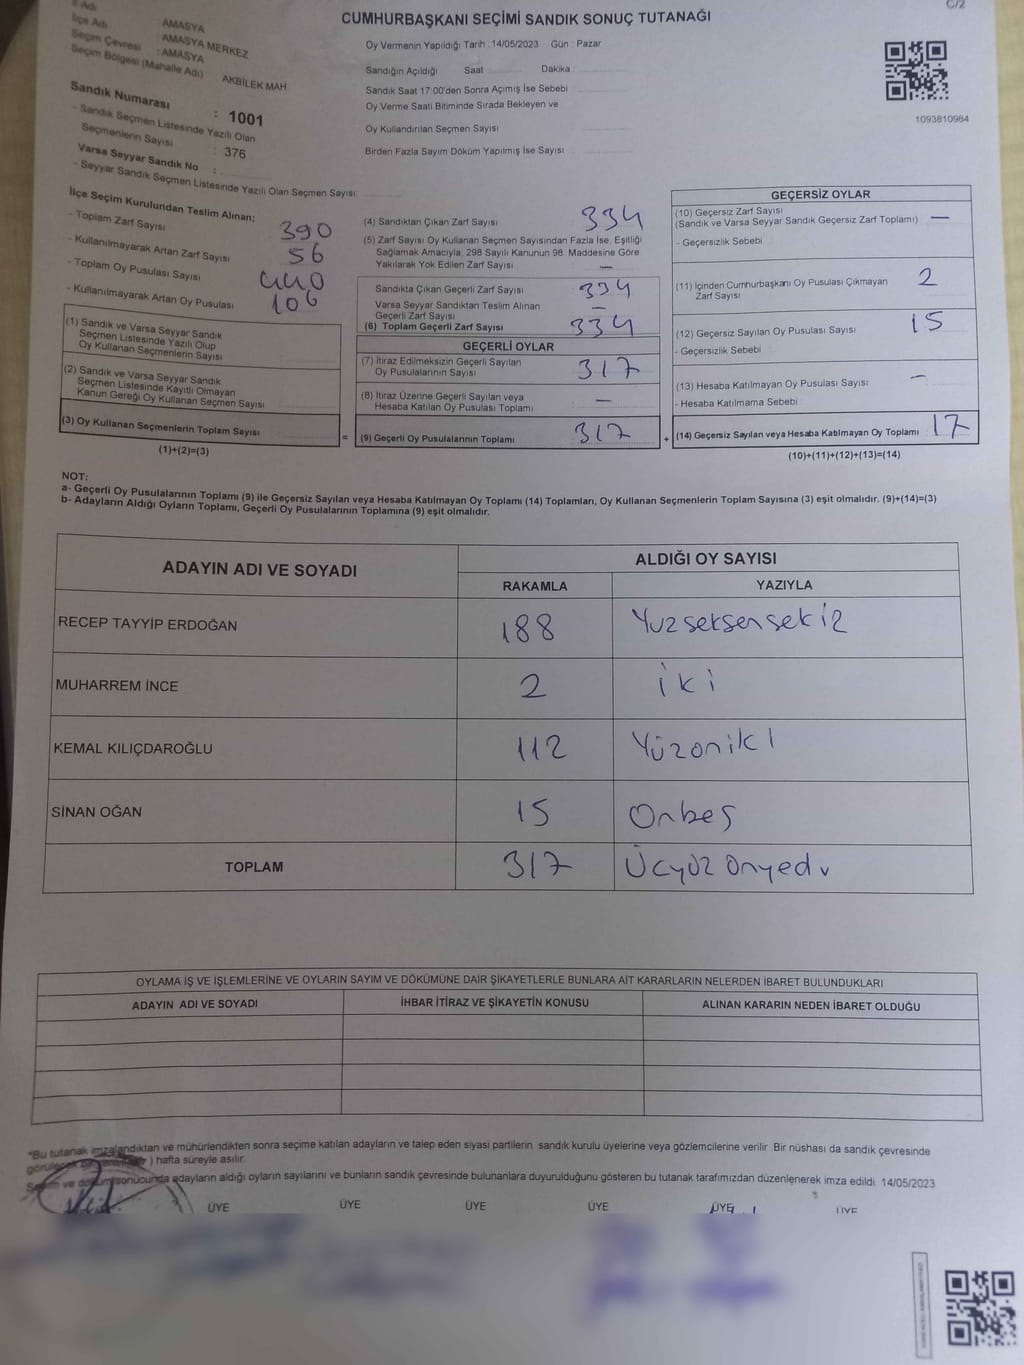 C/2
CUMHURBAŞKANI SEÇİMİ SANDIK SONUÇ TUTANAĞI
İl Adı : AMASYA
İlçe Adı : AMASYA MERKEZ
Seçim Çevresi : AMASYA
Seçim Bölgesi (Mahalle Adı) AKBİLEK MAH
Sandık Numarası : 1001
- Sandık Seçmen Listesinde Yazılı Olan
Seçmenlerin Sayısı : 376
Varsa Seyyar Sandık No :
- Seyyar Sandık Seçmen Listesinde Yazılı Olan Seçmen Sayısı
Oy Vermenin Yapıldığı Tarih : 14/05/2023 Gün : Pazar
Sandığın Açıldığı Saat Dakika
Sandık Saat 17:00'den Sonra Açımış İse Sebebi
Oy Verme Saati Bitiminde Sırada Bekleyen ve
Oy Kullandırılan Seçmen Sayısı
Birden Fazla Sayım Döküm Yapılmış İse Sayısı
1093810984
İlçe Seçim Kurulundan Teslim Alınan;
- Toplam Zarf Sayısı 390
- Kullanılmayarak Artan Zarf Sayısı 56
- Toplam Oy Pusulası Sayısı 440
- Kullanılmayarak Artan Oy Pusulası 106
(1) Sandık ve Varsa Seyyar Sandık
Seçmen Listesinde Yazılı Olup
Oy Kullanan Seçmenlerin Sayısı
(2) Sandık ve Varsa Seyyar Sandık
Seçmen Listesinde Kayıtlı Olmayan
Kanun Gereği Oy Kullanan Seçmen Sayısı
(3) Oy Kullanan Seçmenlerin Toplam Sayısı
(1)+(2)=(3)
=
(4) Sandıktan Çıkan Zarf Sayısı 334
(5) Zarf Sayısı Oy Kullanan Seçmen Sayısından Fazla İse, Eşitliği
Sağlamak Amacıyla, 298 Sayılı Kanunun 98. Maddesine Göre
Yakılarak Yok Edilen Zarf Sayısı : —
Sandıkta Çıkan Geçerli Zarf Sayısı : 334
Varsa Seyyar Sandıktan Teslim Alınan
Geçerli Zarf Sayısı : —
(6) Toplam Geçerli Zarf Sayısı 334
GEÇERLİ OYLAR
(7) İtiraz Edilmeksizin Geçerli Sayılan
Oy Pusulalarının Sayısı : 317
(8) İtiraz Üzerine Geçerli Sayılan veya
Hesaba Katılan Oy Pusulası Toplamı : —
(9) Geçerli Oy Pusulalarının Toplamı : 317
+
GEÇERSİZ OYLAR
(10) Geçersiz Zarf Sayısı
(Sandık ve Varsa Seyyar Sandık Geçersiz Zarf Toplamı) : —
- Geçersizlik Sebebi
(11) İçinden Cumhurbaşkanı Oy Pusulası Çıkmayan
Zarf Sayısı : 2
(12) Geçersiz Sayılan Oy Pusulası Sayısı : 15
- Geçersizlik Sebebi
(13) Hesaba Katılmayan Oy Pusulası Sayısı : —
- Hesaba Katılmama Sebebi
(14) Geçersiz Sayılan veya Hesaba Katılmayan Oy Toplamı : 17
(10)+(11)+(12)+(13)=(14)
NOT:
a- Geçerli Oy Pusulalarının Toplamı (9) ile Geçersiz Sayılan veya Hesaba Katılmayan Oy Toplamı (14) Toplamları, Oy Kullanan Seçmenlerin Toplam Sayısına (3) eşit olmalıdır. (9)+(14)=(3)
b- Adayların Aldığı Oyların Toplamı, Geçerli Oy Pusulalarının Toplamına (9) eşit olmalıdır.
ADAYIN ADI VE SOYADI ALDIĞI OY SAYISI
RAKAMLA YAZIYLA
RECEP TAYYİP ERDOĞAN 188 Yüzseksensekiz
MUHARREM İNCE 2 iki
KEMAL KILIÇDAROĞLU 112 Yüzoniki
SİNAN OĞAN 15 Onbeş
TOPLAM 317 Üçyüz Onyedi
OYLAMA İŞ VE İŞLEMLERİNE VE OYLARIN SAYIM VE DÖKÜMÜNE DAİR ŞİKAYETLERLE BUNLARA AİT KARARLARIN NELERDEN İBARET BULUNDUKLARI
ADAYIN ADI VE SOYADI İHBAR İTİRAZ VE ŞİKAYETİN KONUSU ALINAN KARARIN NEDEN İBARET OLDUĞU
"Bu tutanak imzalandıktan ve mühürlendikten sonra seçime katılan adayların ve talep eden siyasi partilerin sandık kurulu üyelerine veya gözlemcilerine verilir. Bir nüshası da sandık çevresinde
) hafta süreyle asılır.
Sayım ve döküm sonucunda adayların aldığı oyların sayılarını ve bunların sandık çevresinde bulunanlara duyurulduğunu gösteren bu tutanak tarafımızdan düzenlenerek imza edildi. 14/05/2023
ÜYE ÜYE ÜYE ÜYE ÜYE ÜYE